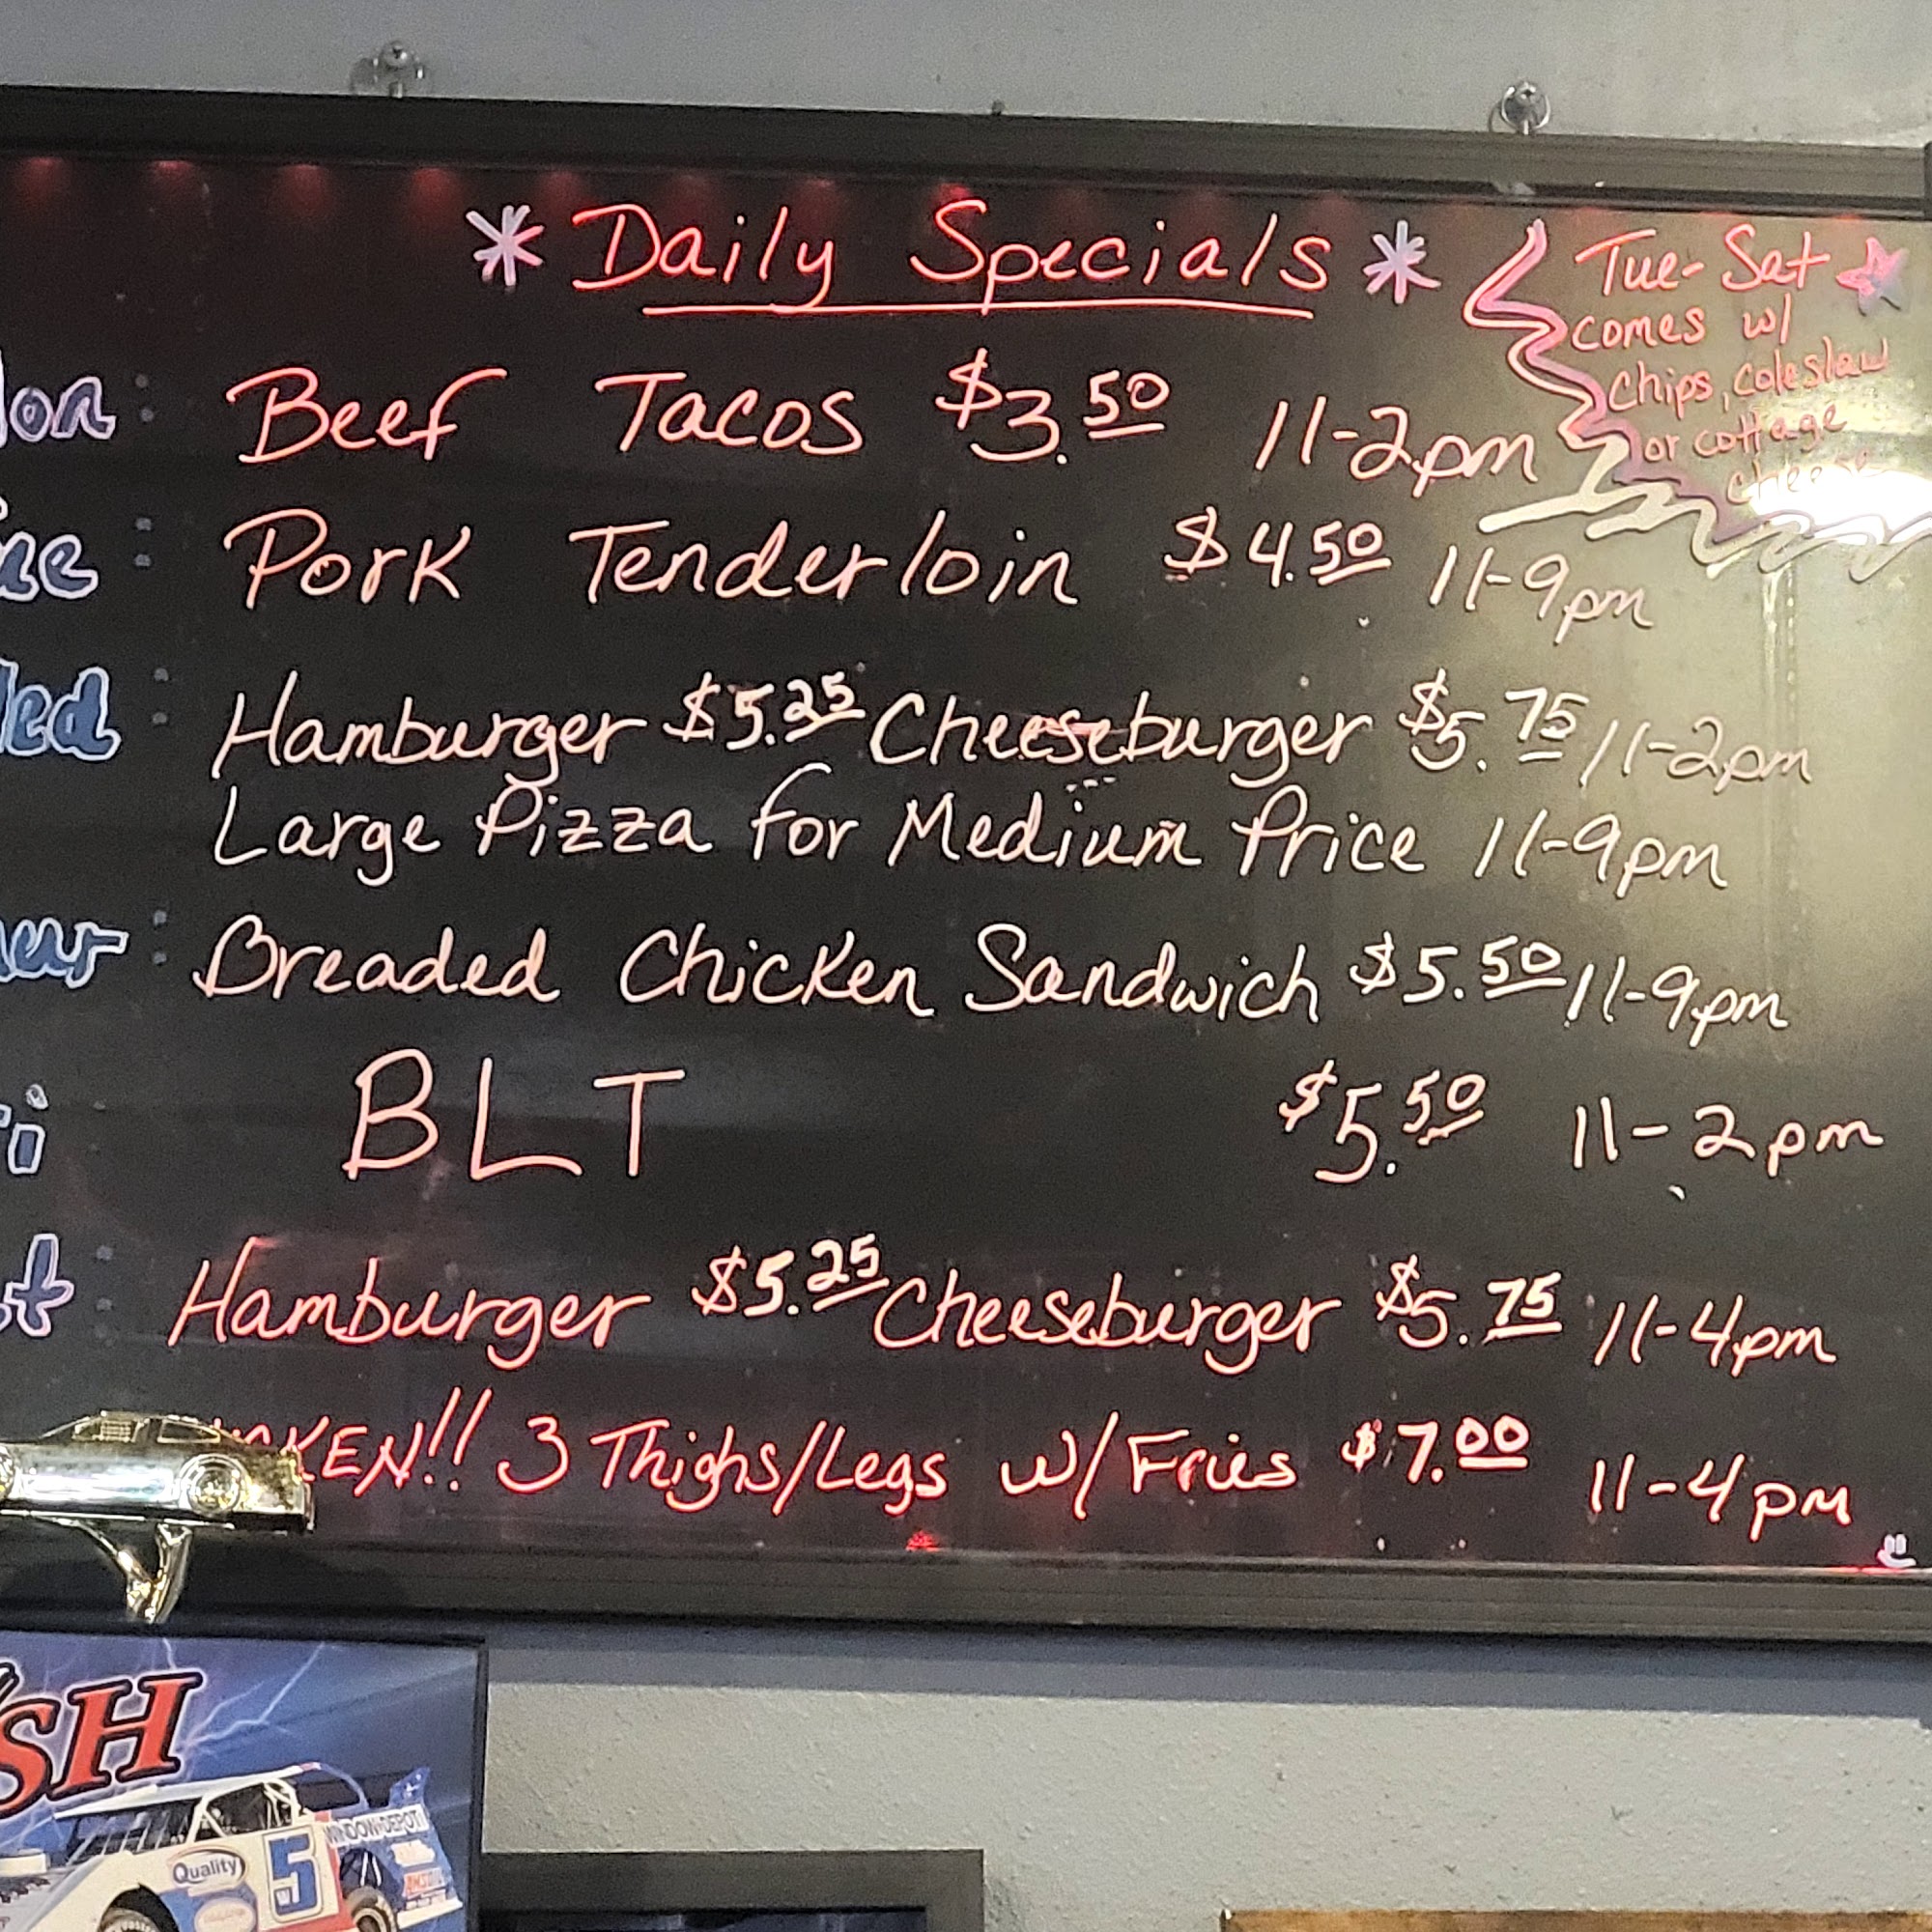 * Daily Specials *
Tue-Sat
comes w/
chips, coleslaw
or cottage
cheese
on: Beef Tacos $3.50 11-2pm
ue: Pork Tenderloin $4.50 11-9pm
ed: Hamburger $5.25 Cheeseburger $5.75 11-2pm
Large Pizza for Medium Price 11-9pm
ur: Breaded Chicken Sandwich $5.50 11-9pm
i BLT $5.50 11-2pm
t: Hamburger $5.25 Cheeseburger $5.75 11-4pm
KEN!! 3 Thighs/Legs w/Fries $7.00 11-4pm
SH
WINDOW DEPOT
Quality
5